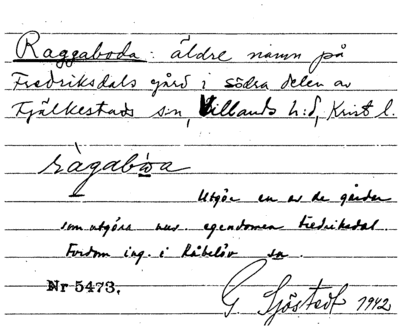 Raggaboda: äldre namn på
Fredriksdals gård i södra delen av
Fjälkestads sn, Villands h:d, Krist l.
ràgabωa
Utgör en av de gårdar
som utgöra nuv. egendomen Fredriksdal.
Fordom ing. i Råbelöv sn.
Nr 5473.
G Sjöstedt 1942